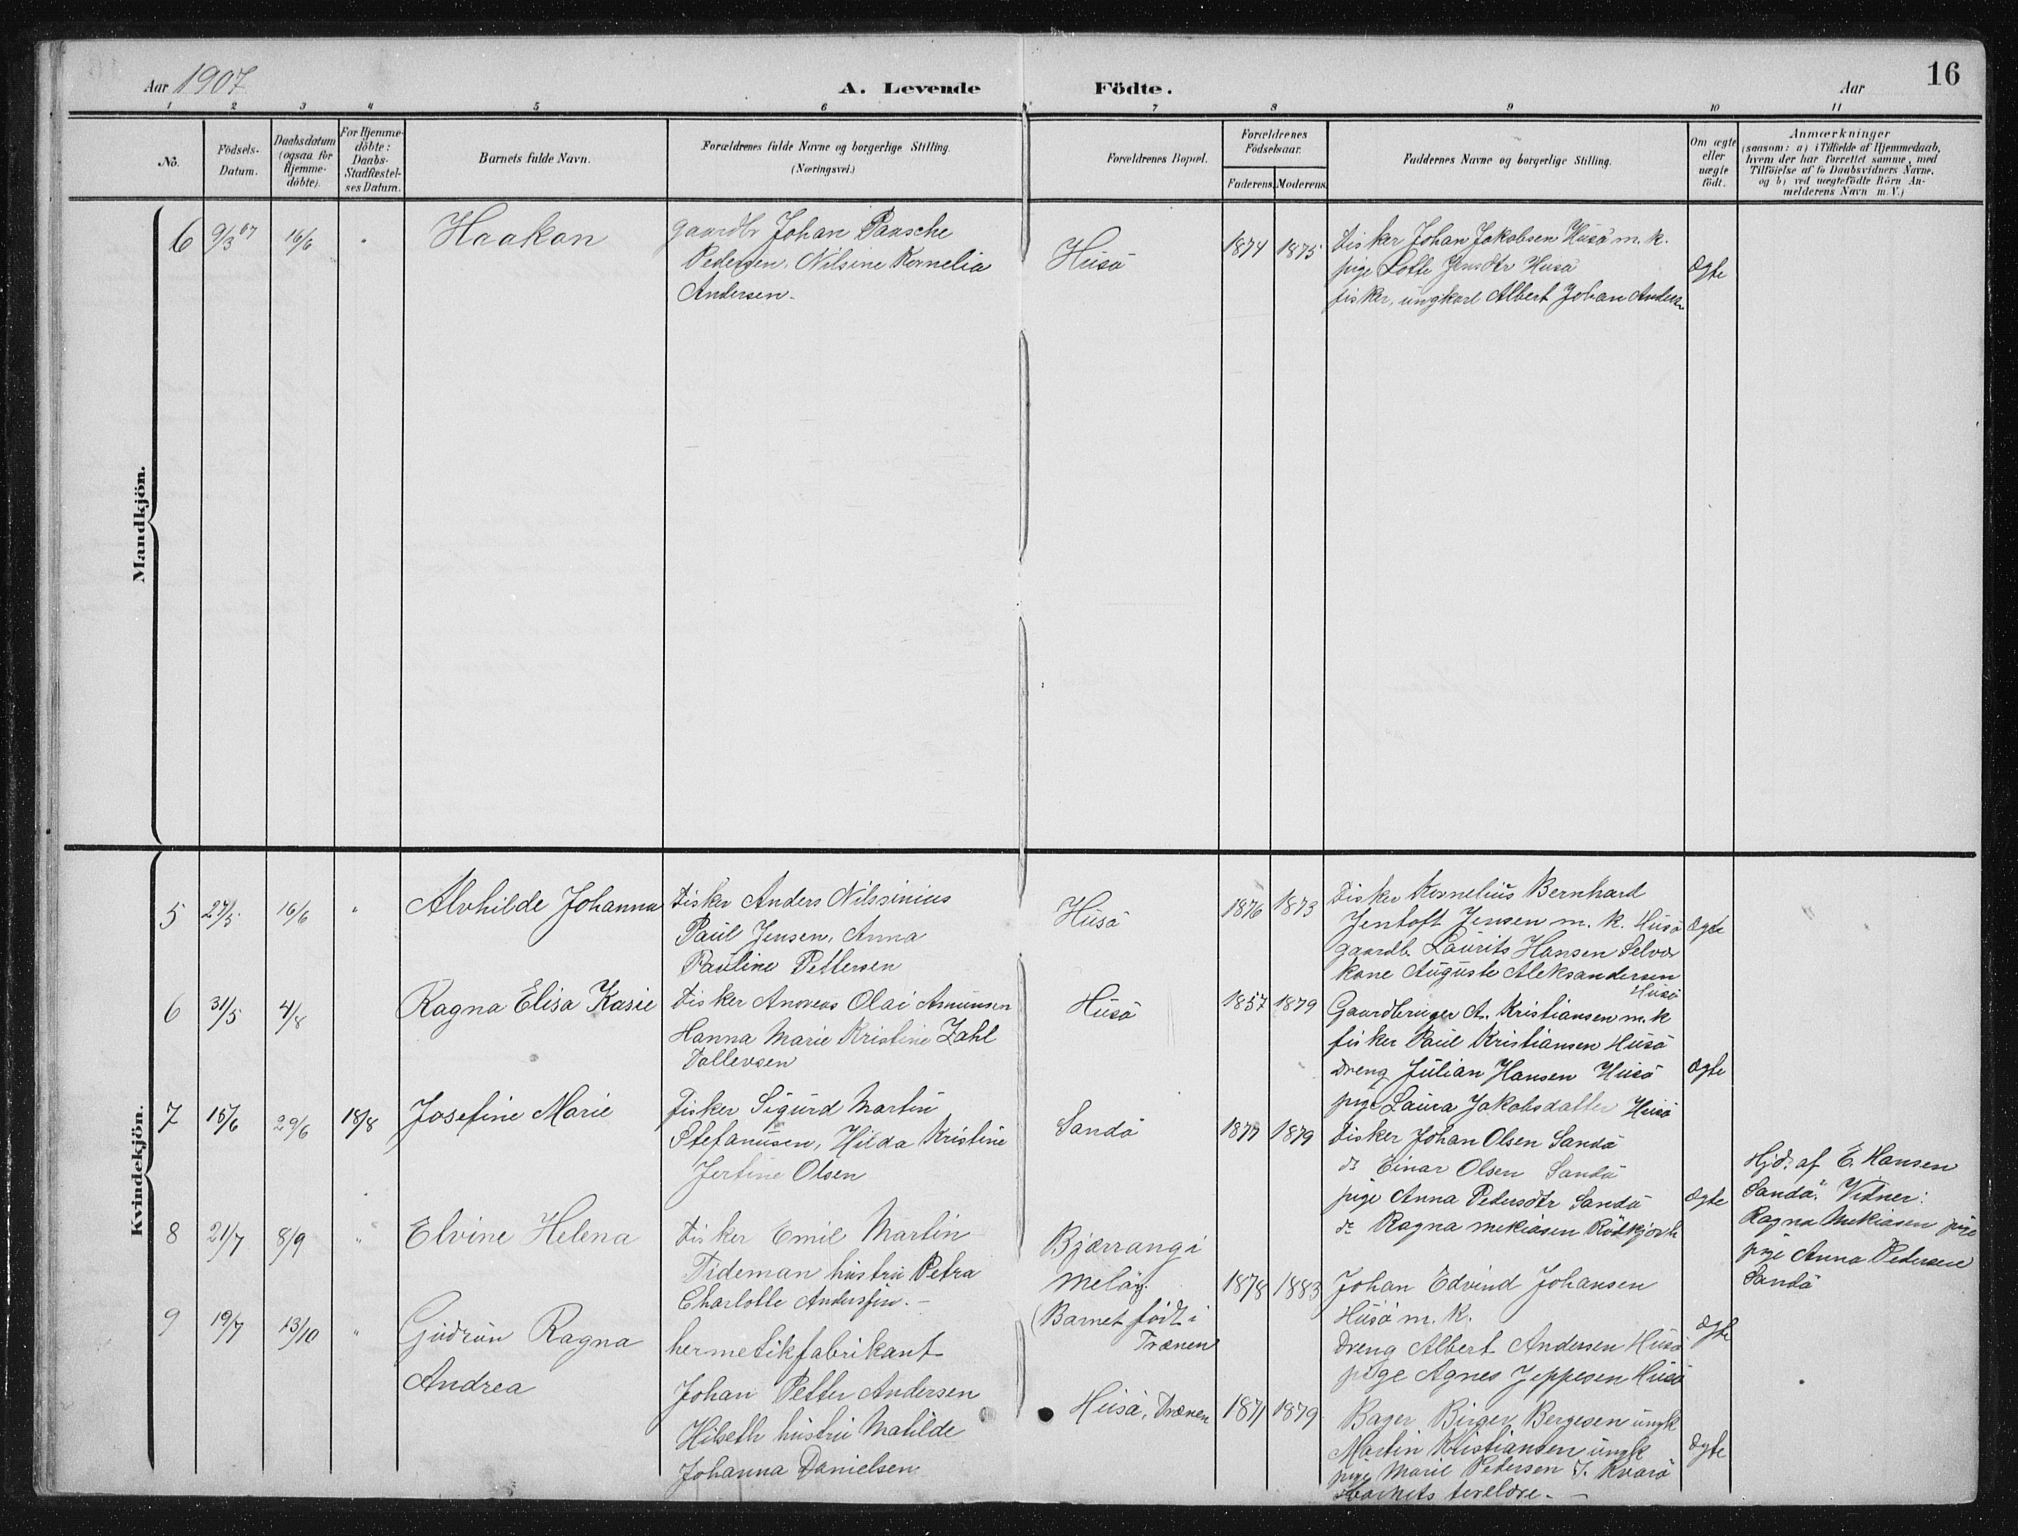 16
Aar 1907
A. Levende Födte.
Aar
1 2 3 4 5 6 7 8 9 10 11
No.
Födsels-
Datum.
Daabsdatum
(ogsaa for
Hjemme-
döbte).
For Hjemme-
döbte:
Daabs-
Stadfæstel-
ses Datum.
Barnets fulde Navn.
Forældrenes fulde Navne og borgerlige Stilling.
(Næringsvei.)
Forældrenes Bopæl.
Forældrenes
Födselsaar.
Faderens.
Moderens.
Faddernes Navne og borgerlige Stilling.
Om ægte
eller
uægte
födt.
Anmærkninger
(saasom: a) i Tilfælde af Hjemmedaab,
hvem der har forrettet samme, med
Tilföielse af to Daabsvidners Navne,
og b) ved uægtefödte Börn An-
melderens Navn m. V.)
Mandkjön.
6 9/3 07 16/6 " Haakon
gaardbr Johan Paasche
Pedersen, Nilsine Kornelia
Andersen.
Husö
1874 1875
fisker Johan Jakobsen Husö m. k.
pige Lotte Jensdtr Husö
fisker, ungkarl Albert Johan Andersen
Ægte
Kvindekjön.
5 27/5 16/6 " Alvhilde Johanna
fisker Anders Nilssinius
Paul Jensen, Anna
Pauline Pettersen
Husö
1876 1873
fisker Kornelius Bernhard
Jentoft Jensen m. k. Husö
gaardb Laurits Hansen Selvær
kone Auguste Aleksandersen
Husö
Ægte
6 31/5 4/8 Ragna Elisa Kasie
fisker Andreas Olai Amunsen
Hanna Marie Kristine Zahl
Tollevsen
Husö
1857 1879
Gaardbruger A. Kristiansen m. k
fisker Paul Kristiansen Husö
Dreng Julian Hansen Husö
pige Laura Jakobsdatter Husö
Ægte
7 15/6 29/6 18/8 Josefine Marie
fisker Sigurd Martin
Stefanusen, Hilda Kristine
Jertine Olsen
Sandö
1877 1879
fisker Johan Olsen Sandö
do Einar Olsen Sandö
pige Anna Pedersdtr Sandö
do Ragna Mekiasen
Ægte
Hjd. af E. Hansen
Sandö. Vidner:
Ragna Mekiasen pige
pige Anna Pedersen
Sandö
8 21/7 8/9 " Elvine Helena
fisker Emil Martin
Tideman hustru Petra
Charlotte Andersen.
Bjærrang i
Melöy.
(Barnet födt i
Trænen
1878 1883
Johan Edvind Johansen
Husö m. k.
Dreng Albert Andersen Husö
pige Agnes Jeppesen Husö
Ægte
9 19/7 13/10 " Gudrun Ragna
Andrea
hermetikfabrikant
Johan Petter Andersen
Hilseth hustru Matilde
Johanna Danielsen
Husö, Trænen
1871 1879
Bager Birger Bergesen ungk
Martin Kristiansen ungk
pige Marie Pedersen S. Kvarö
Barnets forældre.
Ægte